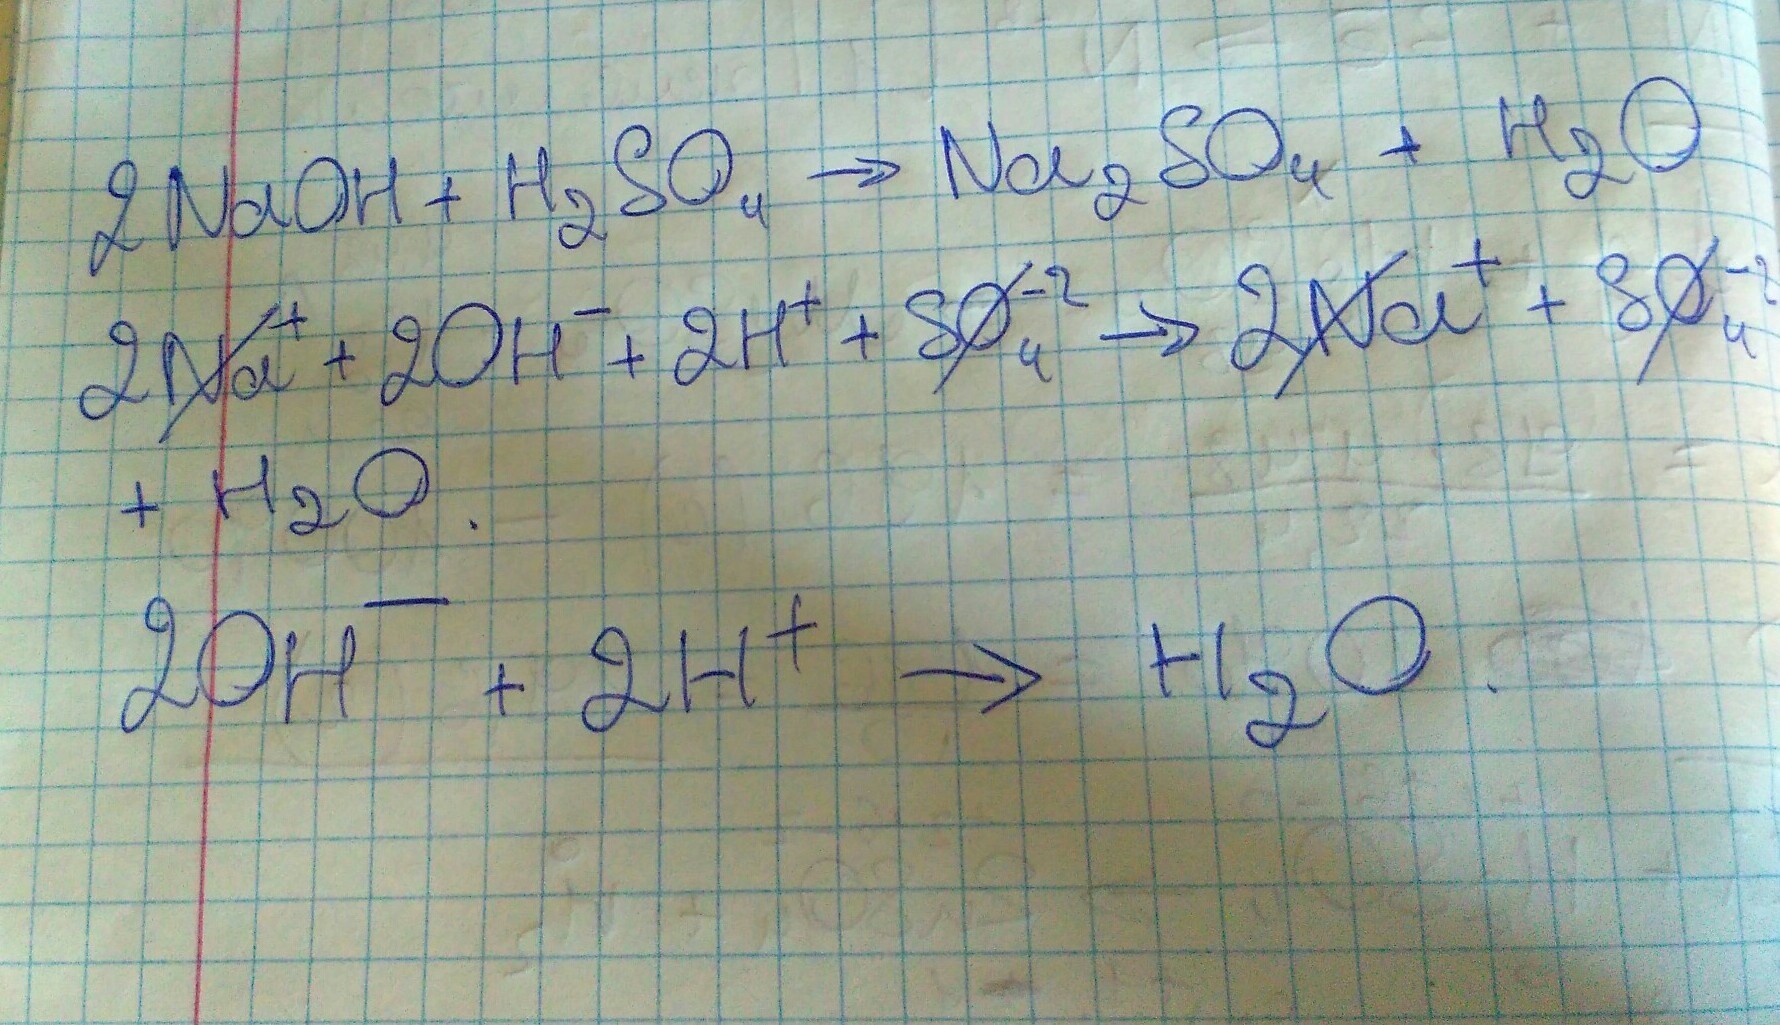 2NaOH + H₂SO₄ → Na₂SO₄ + H₂O
2Na⁺ + 2OH⁻ + 2H⁺ + SO₄⁻² → 2Na⁺ + SO₄⁻²
+ H₂O.
2OH⁻ + 2H⁺ → H₂O.